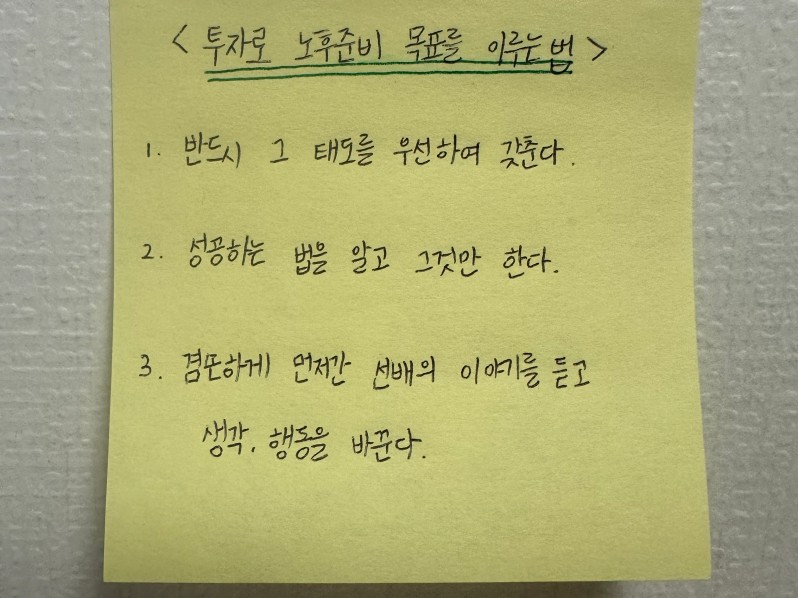 < 투자로 노후준비 목표를 이루는 법 >
1. 반드시 그 태도를 우선하여 갖춘다.
2. 성공하는 법을 알고 그것만 한다.
3. 겸손하게 먼저간 선배의 이야기를 듣고
생각, 행동을 바꾼다.